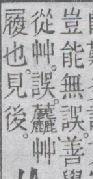 豈能無誤。善學
從艸。誤。艸
履也見後。